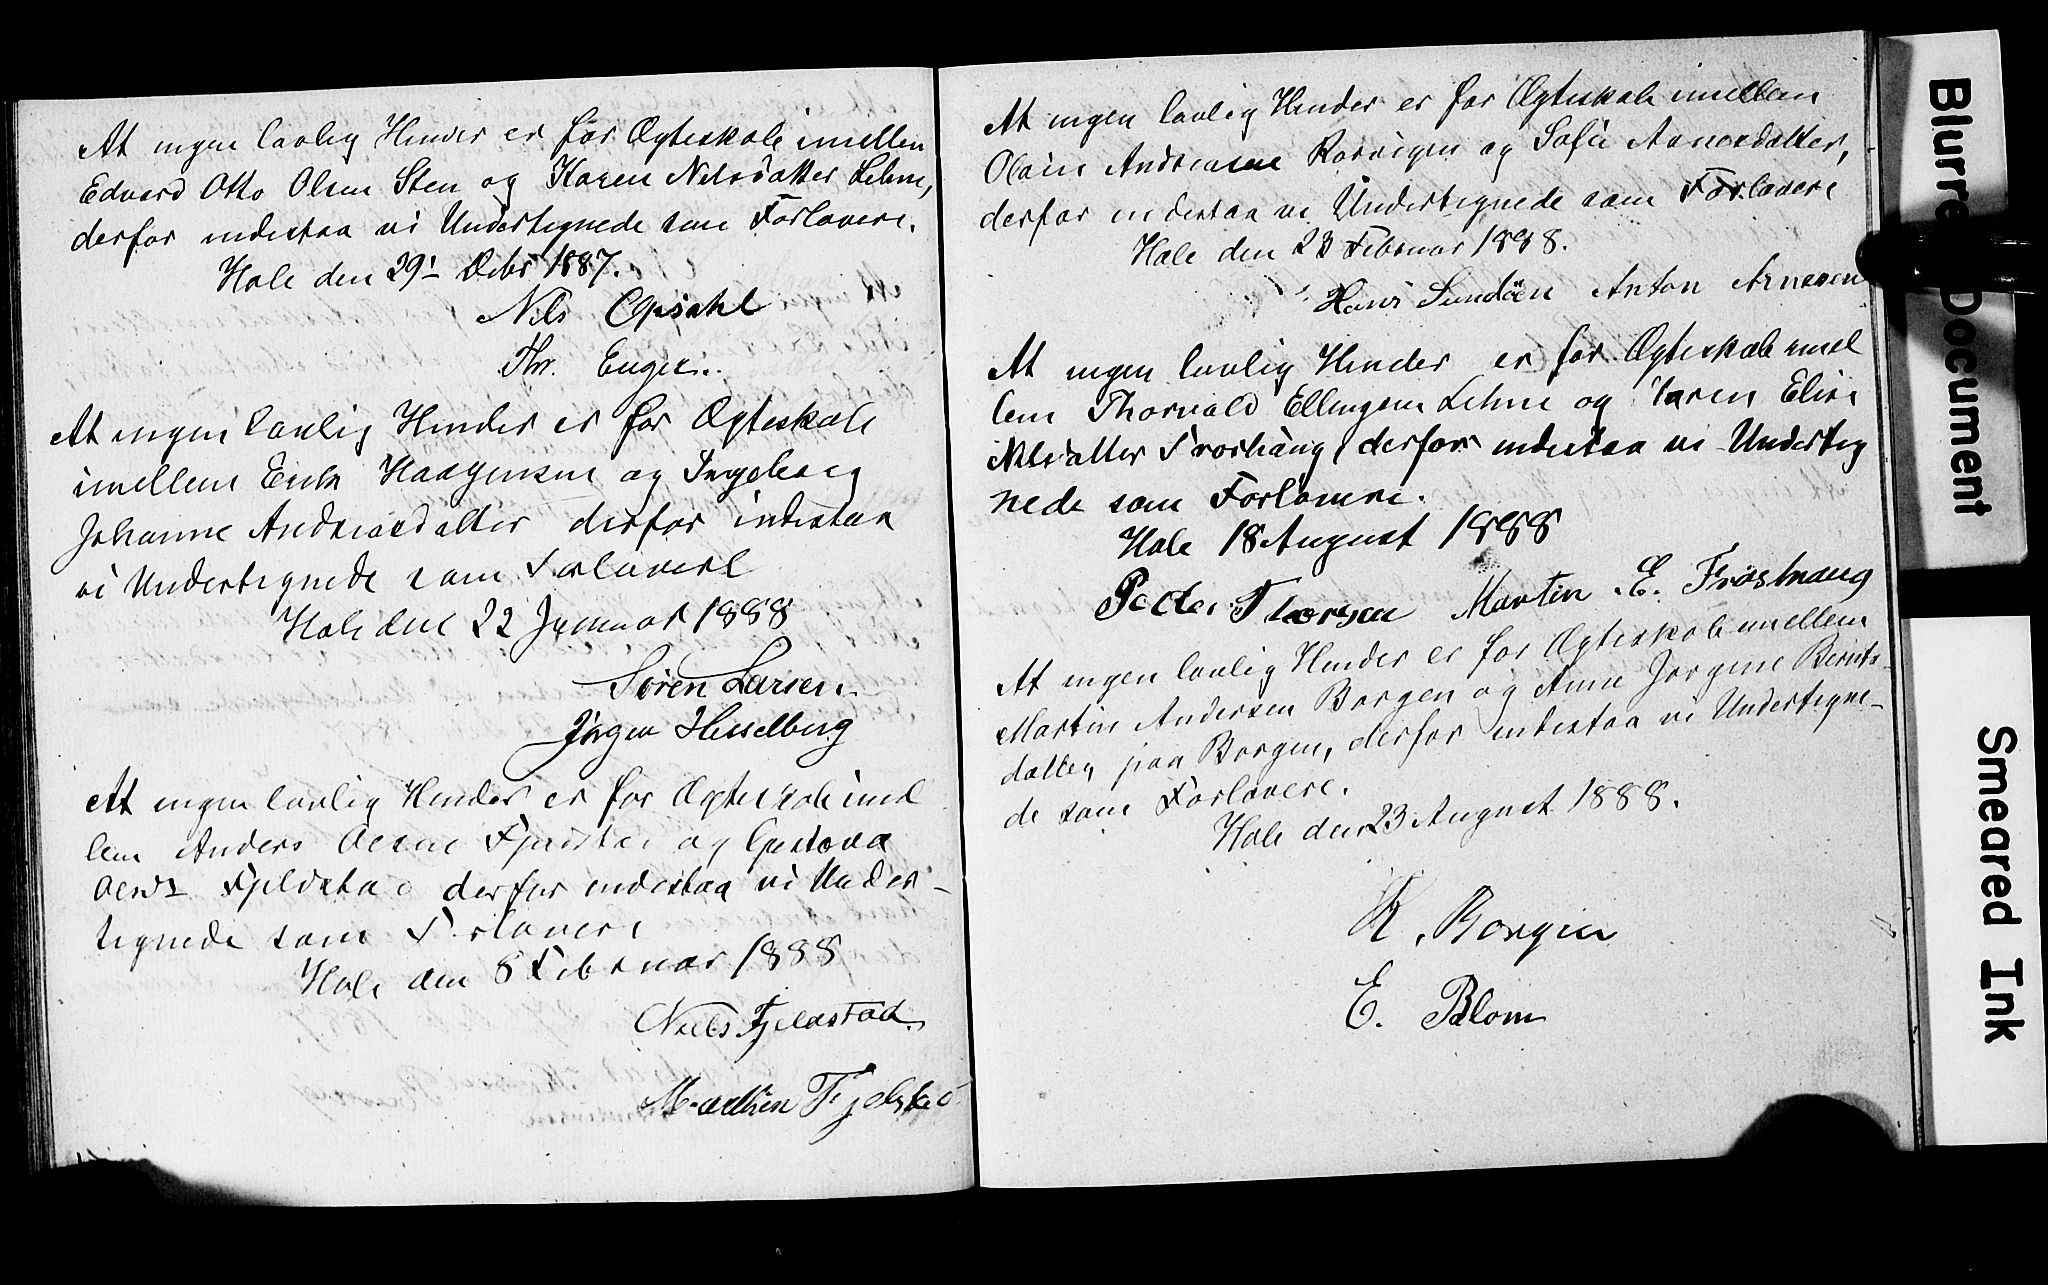 At ingen lovlig Hinder er for Ægteskab imellem
Edvard Otto Olsen Sten og Karen Nilsdatter Lehne,
derfor indestaa vi Undertegnede som Forlovere.
Hole den 29' Debr 1887.
Nils Opsahl
Thr. Enger.
At ingen lovlig Hinder er for Ægteskab
imellem Erik Haagensen og Ingeborg
Johanne Andreasdatter derfor indestaa
vi Undertegnede som Forlovere
Hole den 22 Januar 1888
Søren Larsen.
Jørgen Hesselberg
At ingen lovlig Hinder er for Ægteskab imel
lem Anders Fjeldstad og
Fjeldstad derfor indestaa vi Under-
tegnede som Forlovere
Hole den 8 Februar 1888
Niels Fjeldstad.
Marthin Fjelstad
At ingen lovlig Hinder er for Ægteskab imellem
Olaus Andreasen og Sofie Arnesdatter,
derfor indestaa vi Undertegnede som Forlovere
Hole den 23 Februar 1888.
Hans Sundøen Anton Arnesen
At ingen lovlig Hinder er for Ægteskab imel
lem Thorvald Ellingsen Lehne og Karen Elise
Nilsdatter Frøshaug, derfor indestaa vi Underteg
nede som Forlovere.
Hole 18 August 1888
Peder Thorsen Martin E. Frøshaug
At ingen lovlig Hinder er for Ægteskab imellem
Martin Andersen Borgen og Anne Jørgine Bernts-
datter paa Borgen, derfor indestaa vi Undertegne-
de som Forlovere.
Hole den 23 August 1888.
K. Borgen
E. Blom
Blurred Document
Smeared Ink